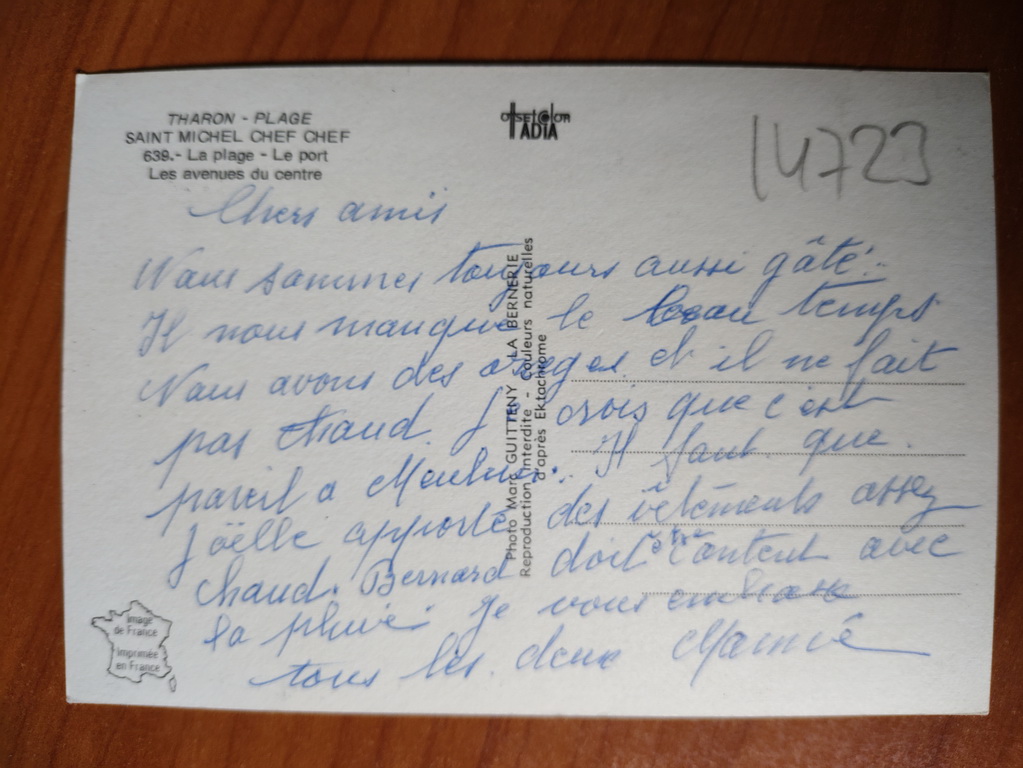 THARON - PLAGE
SAINT MICHEL CHEF CHEF
639.- La plage - Le port
Les avenues du centre
14723
Chers amis
Nous sommes toujours aussi gâté.
Il nous manque le beau temps
Nous avons des orages et il ne fait
pas chaud. Je crois que c'est
pareil a Il faut que.
Joëlle apporte des vêtements assez
chaud. Bernard doit être content avec
la pluie je vous embrasse
tous les deux Mamie
Photo Marc GUITTENY LA BERNERIE
Reproduction interdite - Couleurs naturelles
d'après Ektachrome
Image
de France
Imprimée
en France